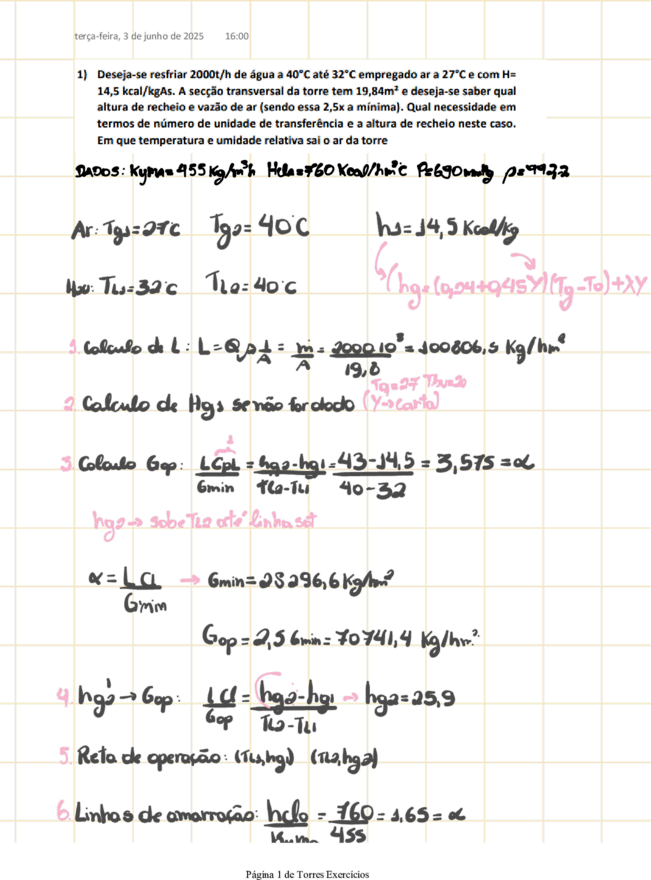 terça-feira, 3 de junho de 2025 16:00
1) Deseja-se resfriar 2000t/h de água a 40°C até 32°C empregado ar a 27°C e com H=
14,5 kcal/kgAs. A secção transversal da torre tem 19,84m² e deseja-se saber qual
altura de recheio e vazão de ar (sendo essa 2,5x a mínima). Qual necessidade em
termos de número de unidade de transferência e a altura de recheio neste caso.
Em que temperatura e umidade relativa sai o ar da torre
DADOS: KyMa=455 Kg/m³h Hcla=760 Kcal/hm³°C P=690mmHg ρ=992,2
Ar: Tg1=27°C Tg2=40°C h1=14,5 Kcal/Kg
H2O: TL1=32°C TL2=40°C (hg=(0,24+0,45Y)(Tg-T0)+λY
1. Calculo de L: L=Qρ1/A = ṁ/A = 2000.10³/19,8 = 100806,5 Kg/hm²
2. Calculo de Hg1 se não for dado (Tg=27 Tbu=20
(Y→carta)
3. Calculo Gop: LCpL/Gmin = hg2-hg1/TL2-TL1 = 43-14,5/40-32 = 3,575=α
hg2→ sobe TL2 até linha sat
α=LCl/Gmin → Gmin=28296,6Kg/hm²
Gop=2,5Gmin=70741,4 Kg/hm²
4. hg2'→Gop: LCl/Gop = hg2-hg1/TL2-TL1 → hg2=25,9
5. Reta de operação: (TL1,hg1) (TL2,hg2)
6. Linhas de amarração: hcla = 760/455 = 1,65=α
Página 1 de Torres Exercícios